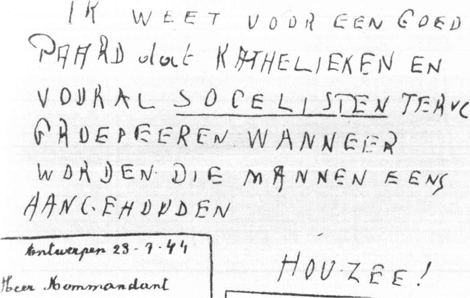 IK WEET VOOR EEN GOED
PAARD dat KATHELIEKEN EN
VOURAL SOCELISTEN TERUG
GROEPEEREN WANNEER
WORDEN DIE MANNEN EENS
AANGEHOUDEN
HOU-ZEE!
Antwerpen 28-7-44
Heer Kommandant